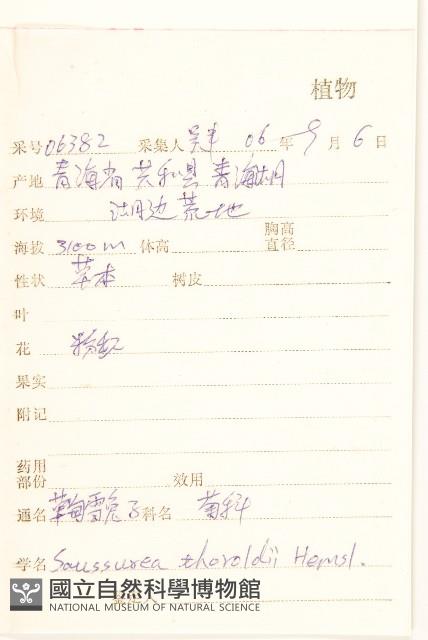 植物
采号 06382 采集人 吴丰 06 年 9 月 6 日
产地 青海省 共和县 青海湖
环境 湖边荒地
海拔 3100m 体高 胸高直径
性状 草本 树皮
叶
花 粉红
果实
附记
药用部份 效用
通名 草甸雪兔子 科名 菊科
学名 Saussurea thoroldii Hemsl.
國立自然科學博物館
NATIONAL MUSEUM OF NATURAL SCIENCE